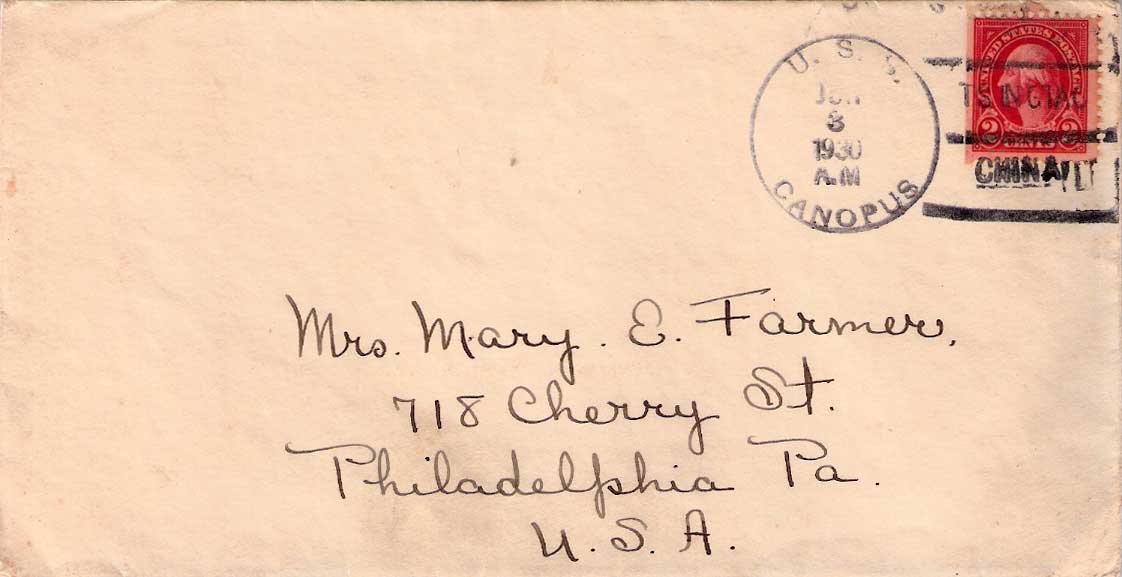 U. S. S.
JUN
8
1930
A.M
CANOPUS
UNITED STATES POSTAGE
TSINGTAO
2 CENTS 2
CHINA
Mrs. Mary. E. Farmer,
718 Cherry St.
Philadelphia Pa.
U. S. A.